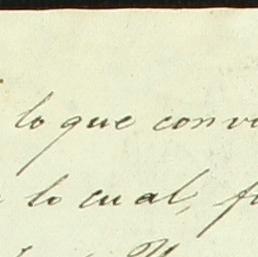 lo que conv
lo cual, f